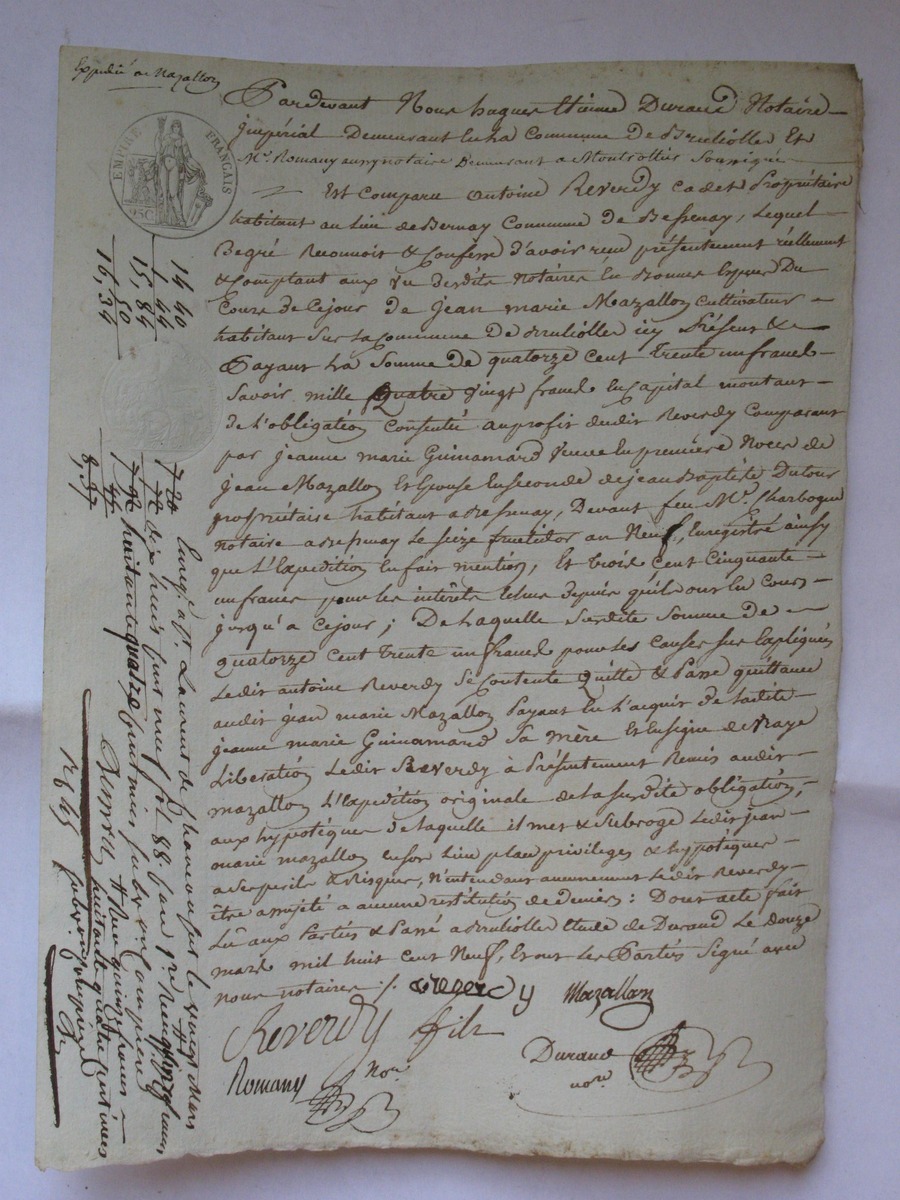 Expedié a Mazallon
EMPIRE FRANÇAIS
25C
Pardevant Nous hugues Etienne Durand Notaire
Impérial Demeurant en la Commune de Brulliolle Et
Mr. Romany aussy notaire Demeurant a Montrottier Soussignés
Est Comparu Antoine Reverdy cadet Propriétaire
habitant au lieu de Bernay Commune de Bessenay, Lequel
De gré Reconnoit & Confesse d'avoir reçu présentement réellement
& Comptant aux vu desdits Notaires En Bonnes Espèces Du
Cours de Cejour De Jean marie Mazallon Cultivateur
habitant Sur la Commune De Brulliolle icy Présent &
Payant La Somme de quatorze cent trente un francs
Savoir mille Quatre vingt francs En Capital montant
de L'obligation Consentie au profit dudit Reverdy Comparant
par jeanne marie Guinamard Veuve En première Noces de
Jean Mazallon Et Epouse En seconde de jean Baptiste Dutour
propriétaire habitant a Bessenay, Devant feu Me. Charbogne
notaire a Bessenay Le Seize fructidor an Neuf, Enregistré ainsy
que L'Expedition En fait mention, Et trois Cent Cinquante
un francs pour les intérêts Echus depuis quils ont En Cours
jusqu'a Cejour; De Laquelle Susdite Somme de
quatorze Cent trente un francs pour les Causes sus Expliquées
Ledit antoine Reverdy Se Contente Quitte & Passe quittance
audit jean marie Mazallon Payant En L'acquit de Ladite
jeanne marie Guinamard Sa mère Et En signe de Vraye
Libération Ledit Reverdy à Présentement Remis audit
mazallon L'Expedition originale de la Susdite obligation,
aux hypotèques de Laquelle il met & Subroge Ledit jean
marie mazallon En son Lieu place privileges & hypotèques
a Ses perils & Risques, N'entendant aucunement Ledit Reverdy
être assujeté a aucune restitution de deniers: Dont acte fait
Lu aux Parties & Passé a Brulliolle Etude de Durand Le Douze
mars mil huit Cent Neuf, Et ont Les Parties Signé avec
nous notaires ./.
Reverdy Mazallon
Reverdy fils
Romany Nore
Durand
nore
14 40
1, 44
15, 84
50
16, 34
7 20
72
7 92
45
8, 37
Enregé a St. Laurent de Chamousset le vingt Mars
dix huit cent neuf fol. 88. Reçu quinze francs
huitante quatre centimes
huitante quatre centimes